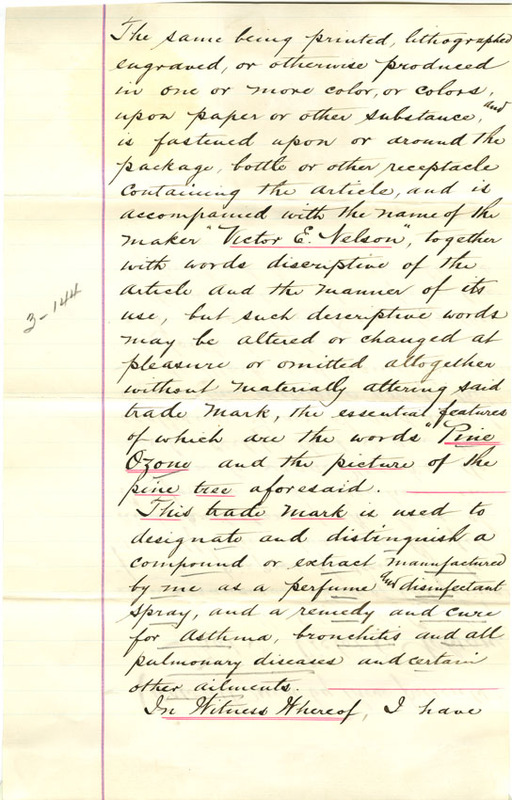 The same being printed, lithographed
engraved, or otherwise produced
in one or more color, or colors,
upon paper or other substance, and
is fastened upon or around the
package, bottle or other receptacle
containing the article, and is
accompanied with the name of the
maker "Victor E. Nelson", together
with words discriptive of the
article and the manner of its
use, but such descriptive words
may be altered or changed at
pleasure or omitted altogether
without materially altering said
trade mark, the essential features
of which are the words "Pine
Ozone and the picture of the
pine tree aforesaid.
This trade mark is used to
designate and distinguish a
compound or extract manufactured
by me as a perfume and disinfectant
spray, and a remedy and cure
for Asthma, bronchitis and all
pulmonary diseases and certain
other ailments.
In Witness Whereof, I have
3-144